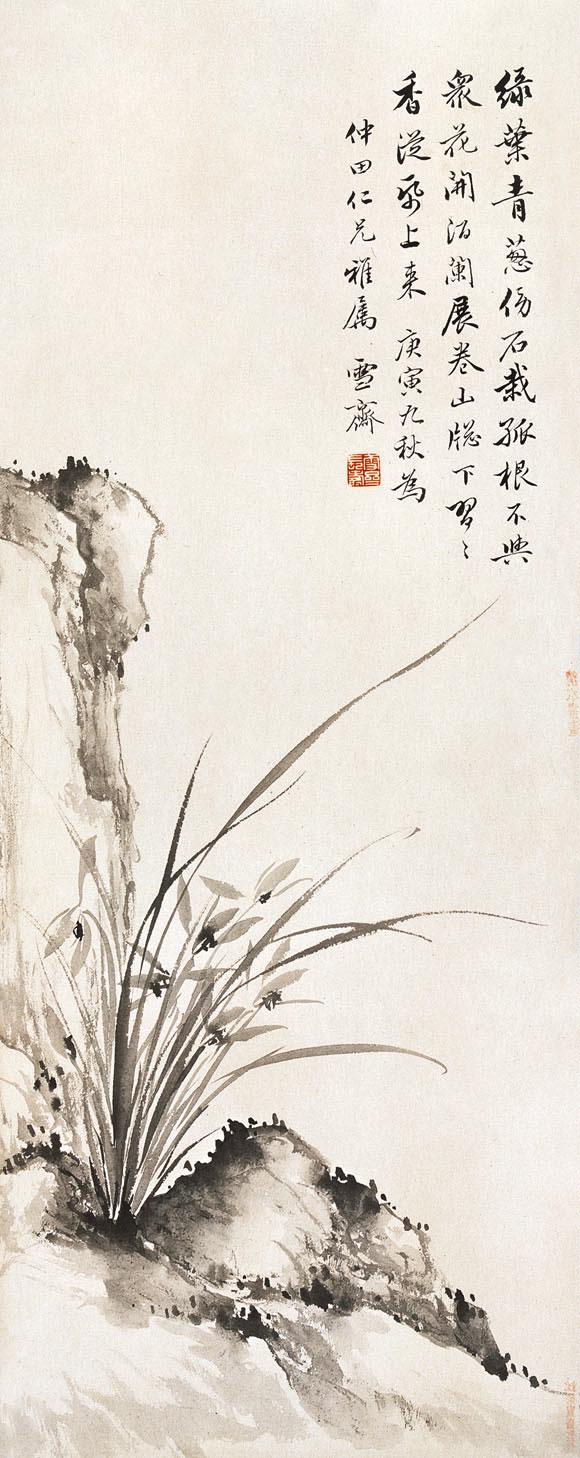 綠葉青葱傍石栽孤根不與
衆花開酒闌展卷山牕下習〻
香從紙上來 庚寅九秋為
仲田仁兄雅属 雪齋